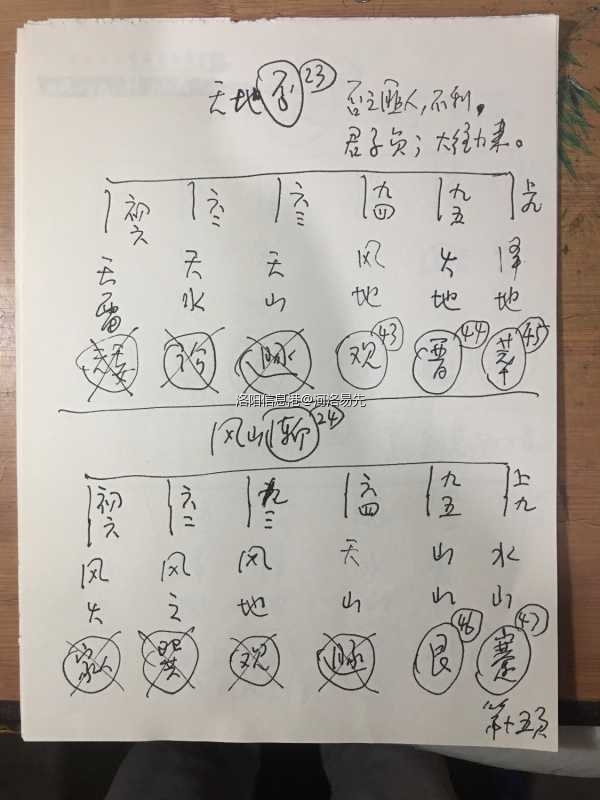 天地否 23 否之匪人，不利，
君子贞；大往小来。
初六 六二 六三 九四 九五 上九
天 天 天 风 火 泽
雷 水 山 地 地 地
讼 观 43 晋 44 萃 45
洛阳信息港@河洛易先
风山渐 24
初六 六二 九三 六四 九五 上九
风 风 风 天 山 水
火 地 山 山 山
家人 巽 观 艮 46 蹇 47
第十五页